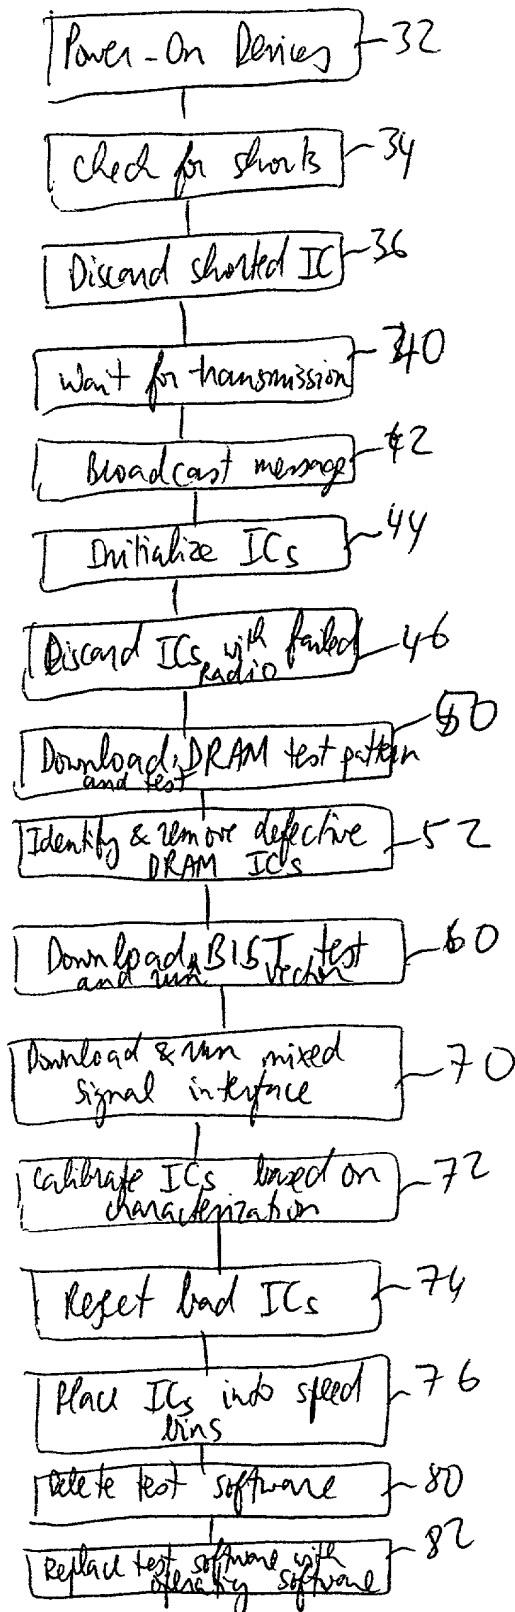 Power-On Devices 32
Check for shorts 34
Discard shorted IC 36
Wait for transmission 40
Broadcast message 42
Initialize ICs 44
Discard ICs with failed 46
Radio
Download DRAM test pattern 50
and test
Identify & remove defective 52
DRAM ICs
Download BIST test 60
and run vector
Download & run mixed 70
signal interface
Calibrate ICs based on 72
characterization
Reject bad ICs 74
Place ICs into speed 76
bins
Delete test software 80
Replace test software with 82
operating software